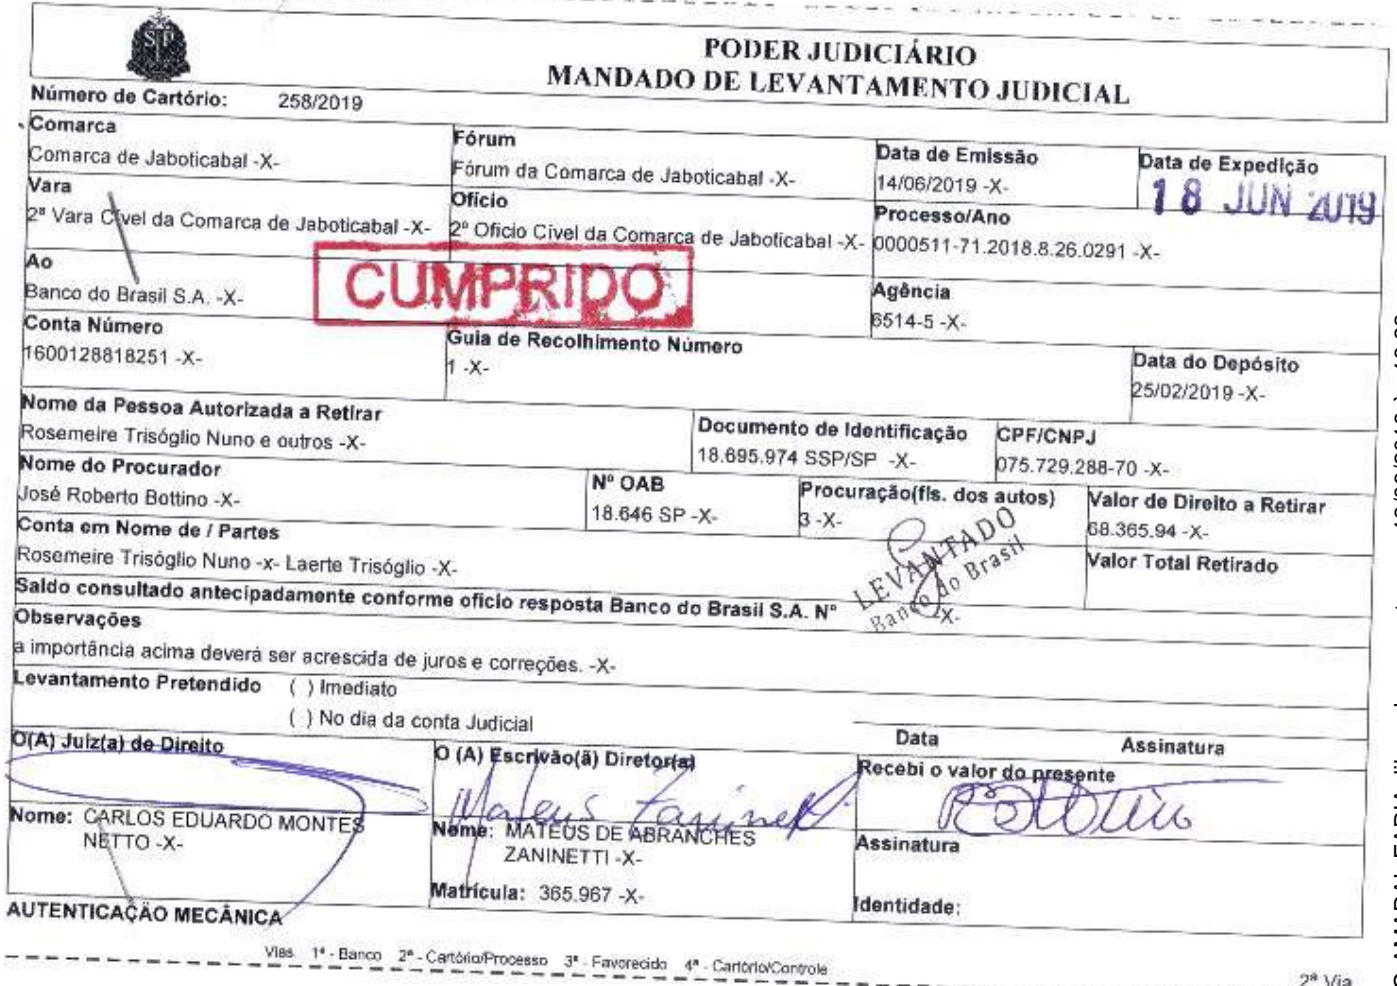 PODER JUDICIÁRIO
MANDADO DE LEVANTAMENTO JUDICIAL
Número de Cartório: 258/2019
Comarca
Comarca de Jaboticabal -X-
Fórum
Fórum da Comarca de Jaboticabal -X-
Data de Emissão
14/06/2019 -X-
Data de Expedição
18 JUN 2019
Vara
2ª Vara Cível da Comarca de Jaboticabal -X-
Ofício
2º Oficio Cível da Comarca de Jaboticabal -X-
Processo/Ano
0000511-71.2018.8.26.0291 -X-
Ao
Banco do Brasil S.A. -X-
CUMPRIDO
Agência
6514-5 -X-
Conta Número
1600128818251 -X-
Guia de Recolhimento Número
1 -X-
Data do Depósito
25/02/2019 -X-
Nome da Pessoa Autorizada a Retirar
Rosemeire Trisóglio Nuno e outros -X-
Documento de Identificação
18.695.974 SSP/SP -X-
CPF/CNPJ
075.729.288-70 -X-
Nome do Procurador
José Roberto Bottino -X-
Nº OAB
18.646 SP -X-
Procuração(fls. dos autos)
3 -X-
Valor de Direito a Retirar
68.365.94 -X-
Conta em Nome de / Partes
Rosemeire Trisóglio Nuno -x- Laerte Trisóglio -X-
LEVANTADO
Banco do Brasil
Valor Total Retirado
Saldo consultado antecipadamente conforme oficio resposta Banco do Brasil S.A. Nº -X-
Observações
a importância acima deverá ser acrescida de juros e correções. -X-
Levantamento Pretendido ( ) Imediato
( ) No dia da conta Judicial
Data Assinatura
O(A) Juiz(a) de Direito
Nome: CARLOS EDUARDO MONTES
NETTO -X-
O (A) Escrivão(ã) Diretor(a)
Mateus Zaninetti
Nome: MATEUS DE ABRANCHES
ZANINETTI -X-
Matrícula: 365.967 -X-
Recebi o valor do presente
Assinatura
Identidade:
AUTENTICAÇÃO MECÂNICA
Vias. 1ª - Banco 2ª - Cartório/Processo 3ª - Favorecido 4ª - Cartório/Controle
2ª Via